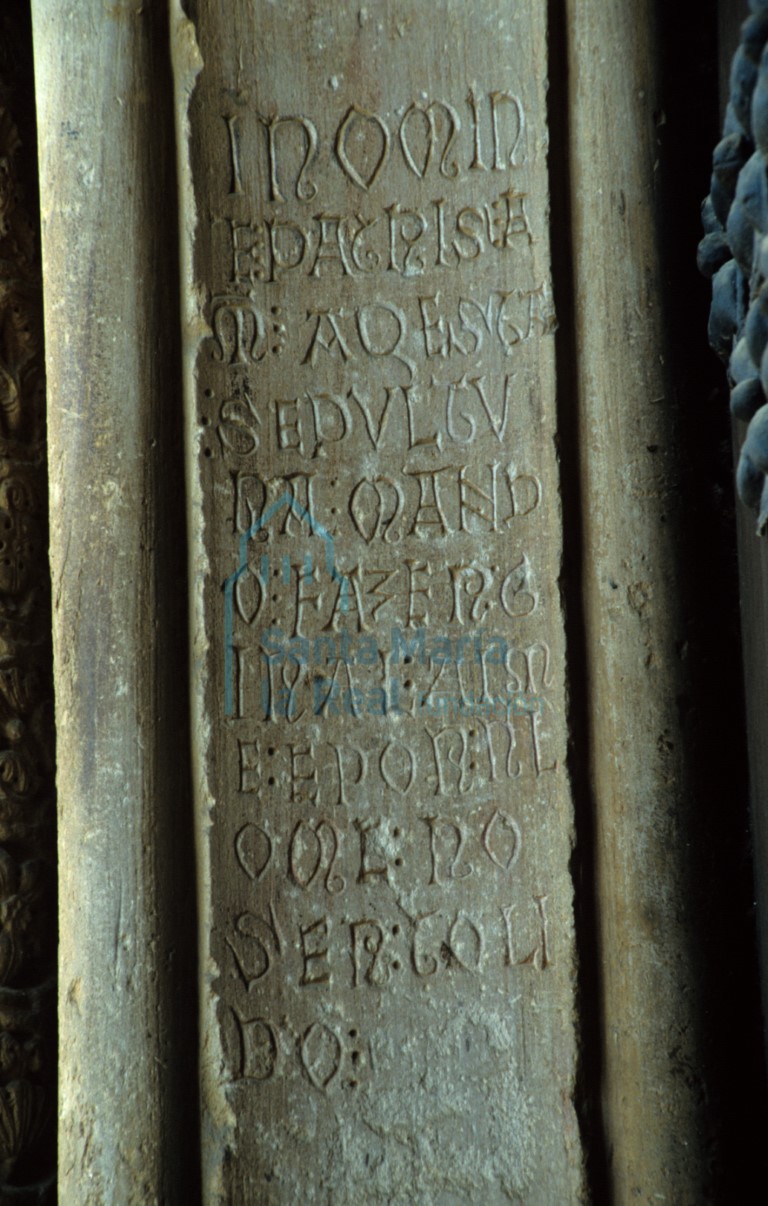 INOMIN
E:PATRIS:EA
M̄: AQESTA
:SEPVLTV
RA:MAND
O:FAZER:G
IRAL:AIM
E:EPOR:NL
OML:NO
SER:TOLI
DO:
Santa María
la Real